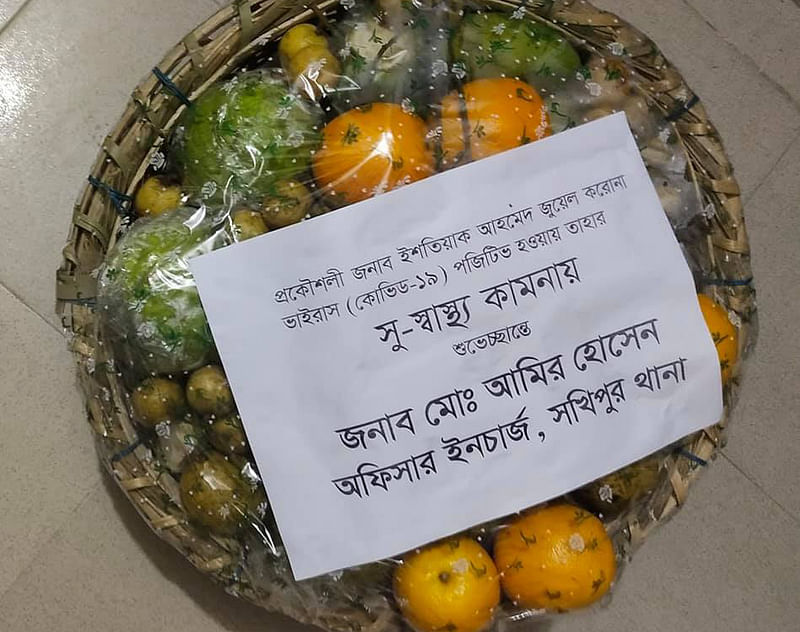 প্রকৌশলী জনাব ইশতিয়াক আহমেদ জুয়েল করোনা
ভাইরাস (কোভিড-১৯) পজিটিভ হওয়ায় তাহার
সু-স্বাস্থ্য কামনায়
শুভেচ্ছান্তে
জনাব মোঃ আমির হোসেন
অফিসার ইনচার্জ, সখিপুর থানা